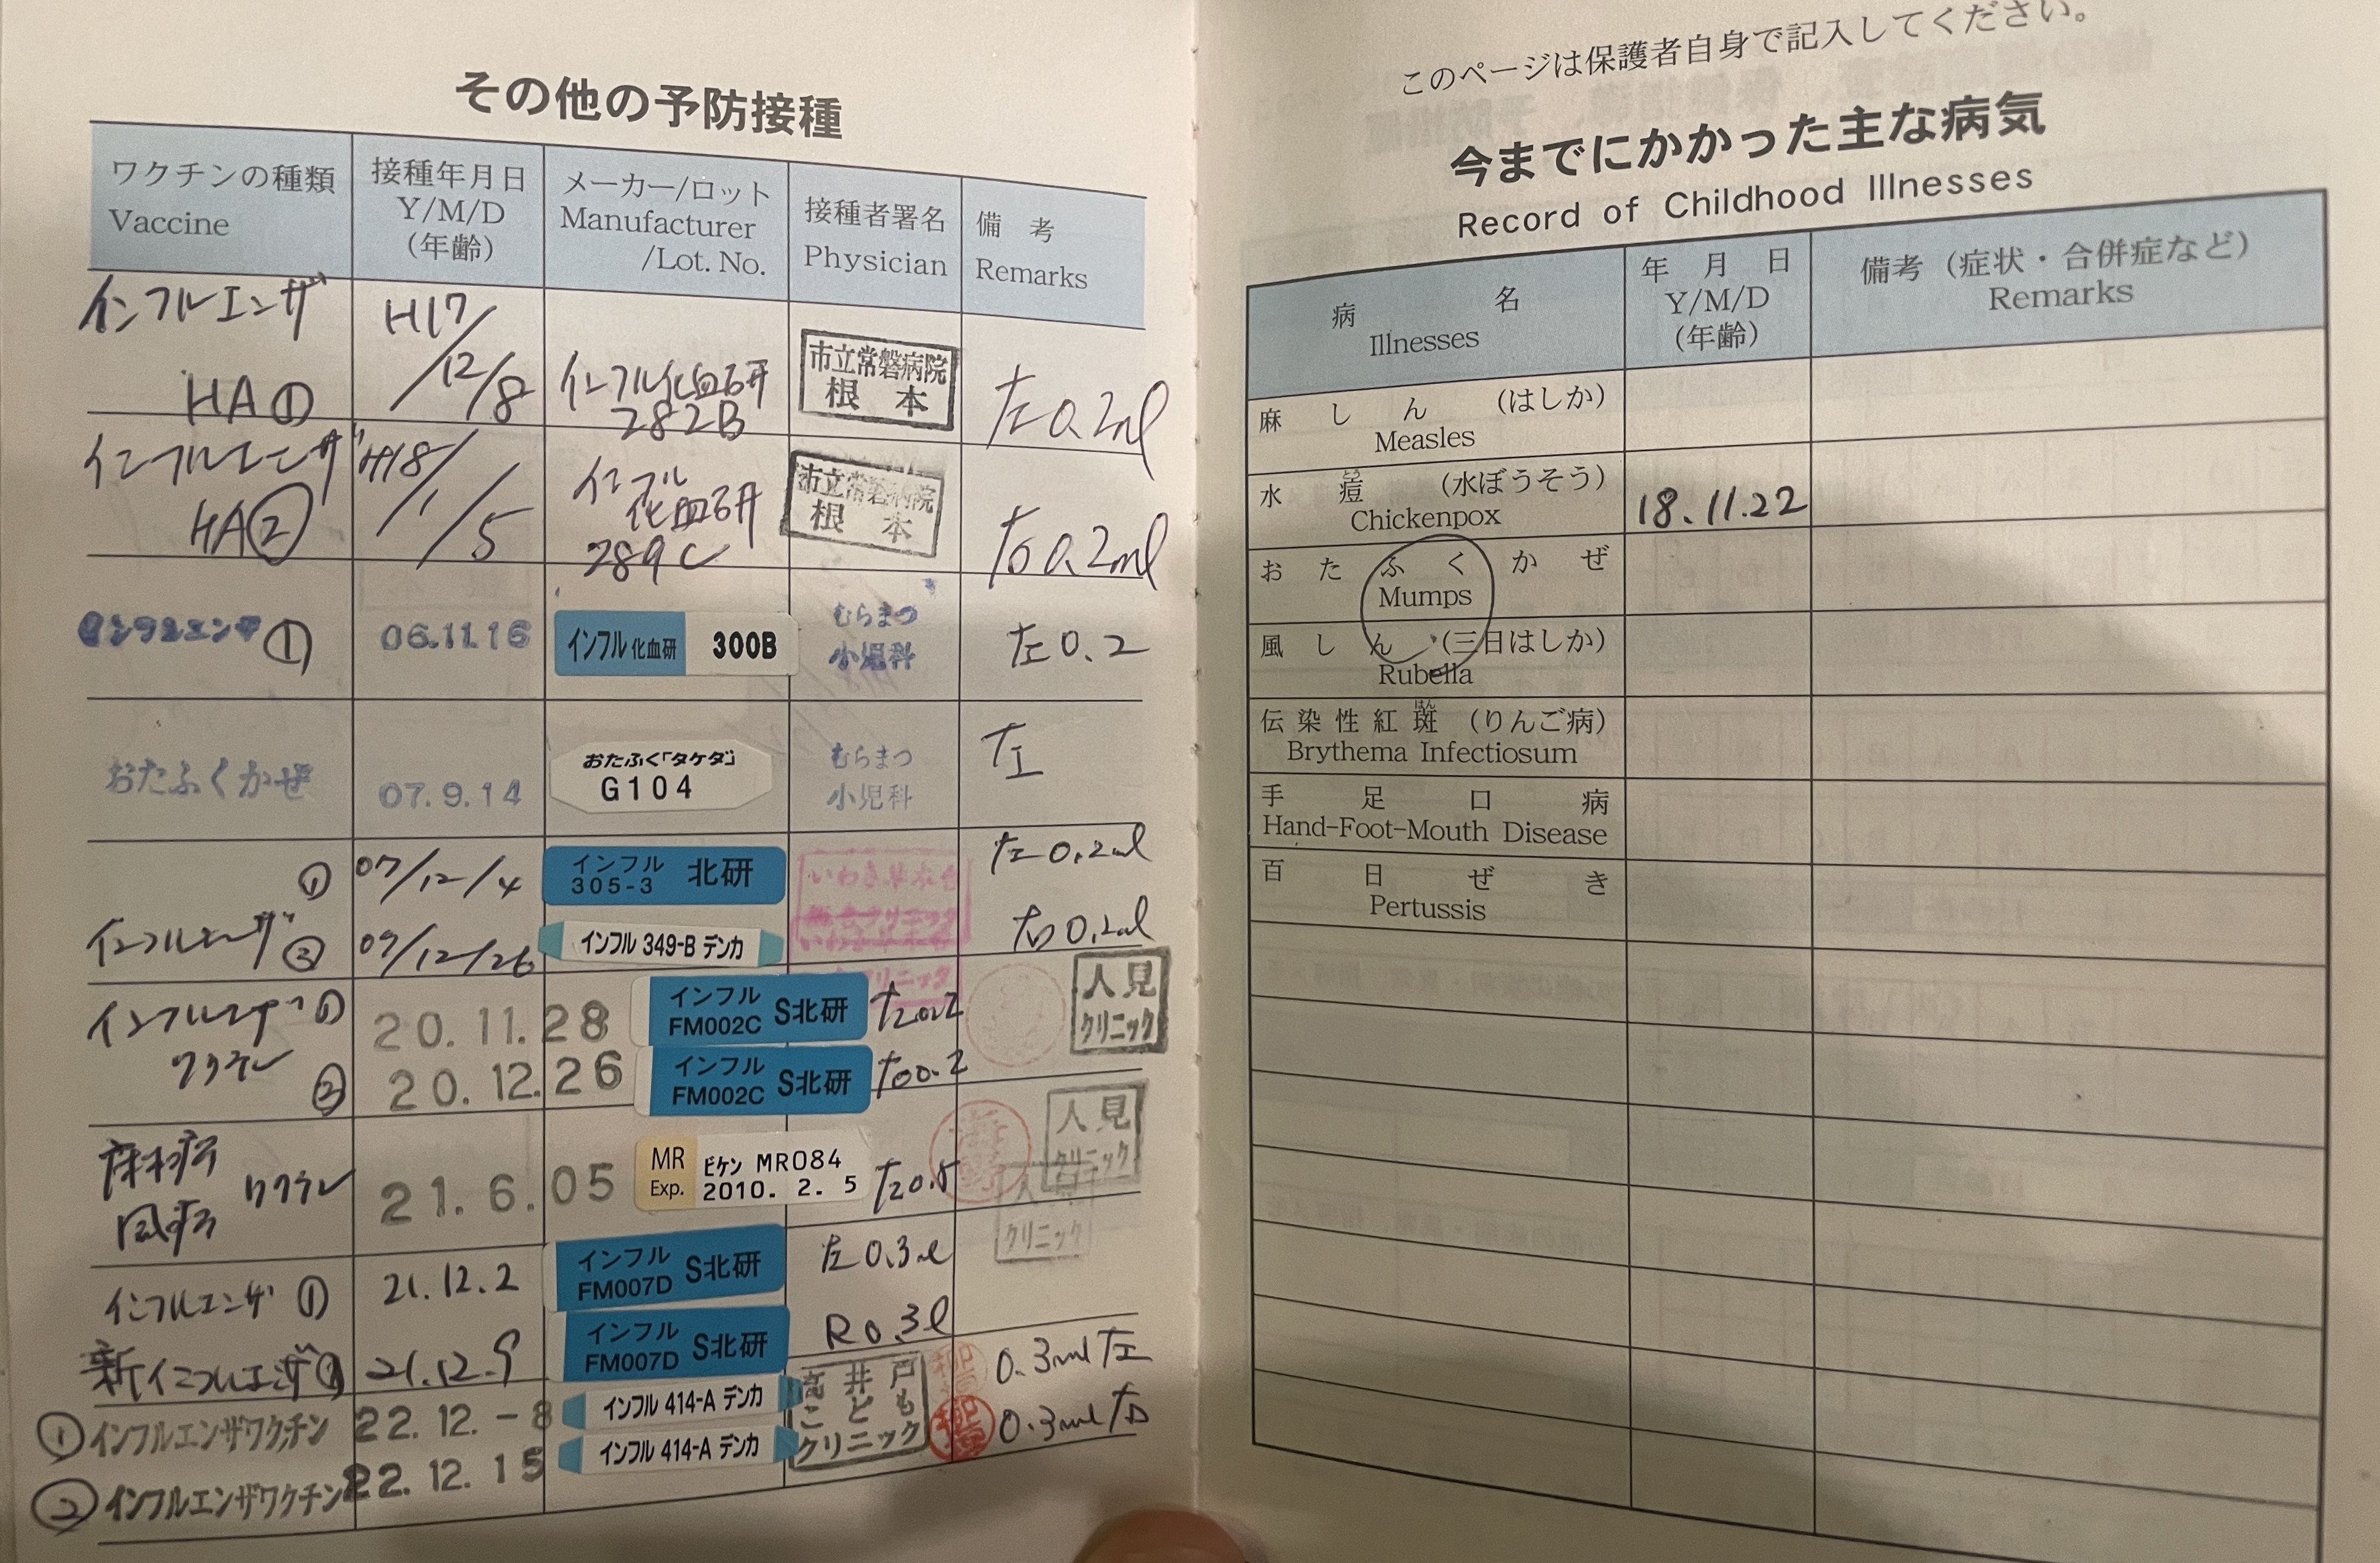 その他の予防接種
ワクチンの種類 Vaccine
接種年月日 Y/M/D (年齢)
メーカー/ロット Manufacturer /Lot. No.
接種者署名 Physician
備 考 Remarks
インフルエンザ HA① H17/12/8 インフル化血研 282B 市立常磐病院 根 本 左0.2ml
インフルエンザ HA② H18/1/5 インフル 化血研 289C 市立常磐病院 根 本 右0.2ml
インフルエンザ ① 06.11.16 インフル 化血研 300B むらまつ 小児科 左0.2
おたふくかぜ 07.9.14 おたふく「タケダ」 G104 むらまつ 小児科 左
① 07/12/4 インフル 305-3 北研 左0.2ml
インフルエンザ 07/12/26 インフル 349-B デンカ クリニック 右0.2ml
インフルエンザ ① 20.11.28 インフル FM002C S北研 左0.2 人見 クリニック
ワクチン ② 20.12.26 インフル FM002C S北研 右0.2 人見 クリニック
麻疹 風疹 ワクチン 21.6.05 MR Exp. ビケン MR084 2010. 2. 5 左0.5 人見 クリニック
インフルエンザ ① 21.12.2 インフル FM007D S北研 左0.3
新インフルエンザ 21.12.9 インフル FM007D S北研 R0.3
① インフルエンザワクチン 22.12.-8 インフル 414-A デンカ 高井戸 こども クリニック 0.3ml 左
② インフルエンザワクチン 22.12.15 インフル 414-A デンカ 0.3ml 右
このページは保護者自身で記入してください。
今までにかかった主な病気
Record of Childhood Illnesses
病 名 Illnesses
年 月 日 Y/M/D (年齢)
備考（症状・合併症など） Remarks
麻 し ん （はしか）
Measles
水 痘 （水ぼうそう）
とう
Chickenpox 18.11.22
お た ふ く か ぜ
Mumps
風 し ん （三日はしか）
Rubella
伝 染 性 紅 斑 （りんご病）
はん
Brythema Infectiosum
手 足 口 病
Hand-Foot-Mouth Disease
百 日 ぜ き
Pertussis